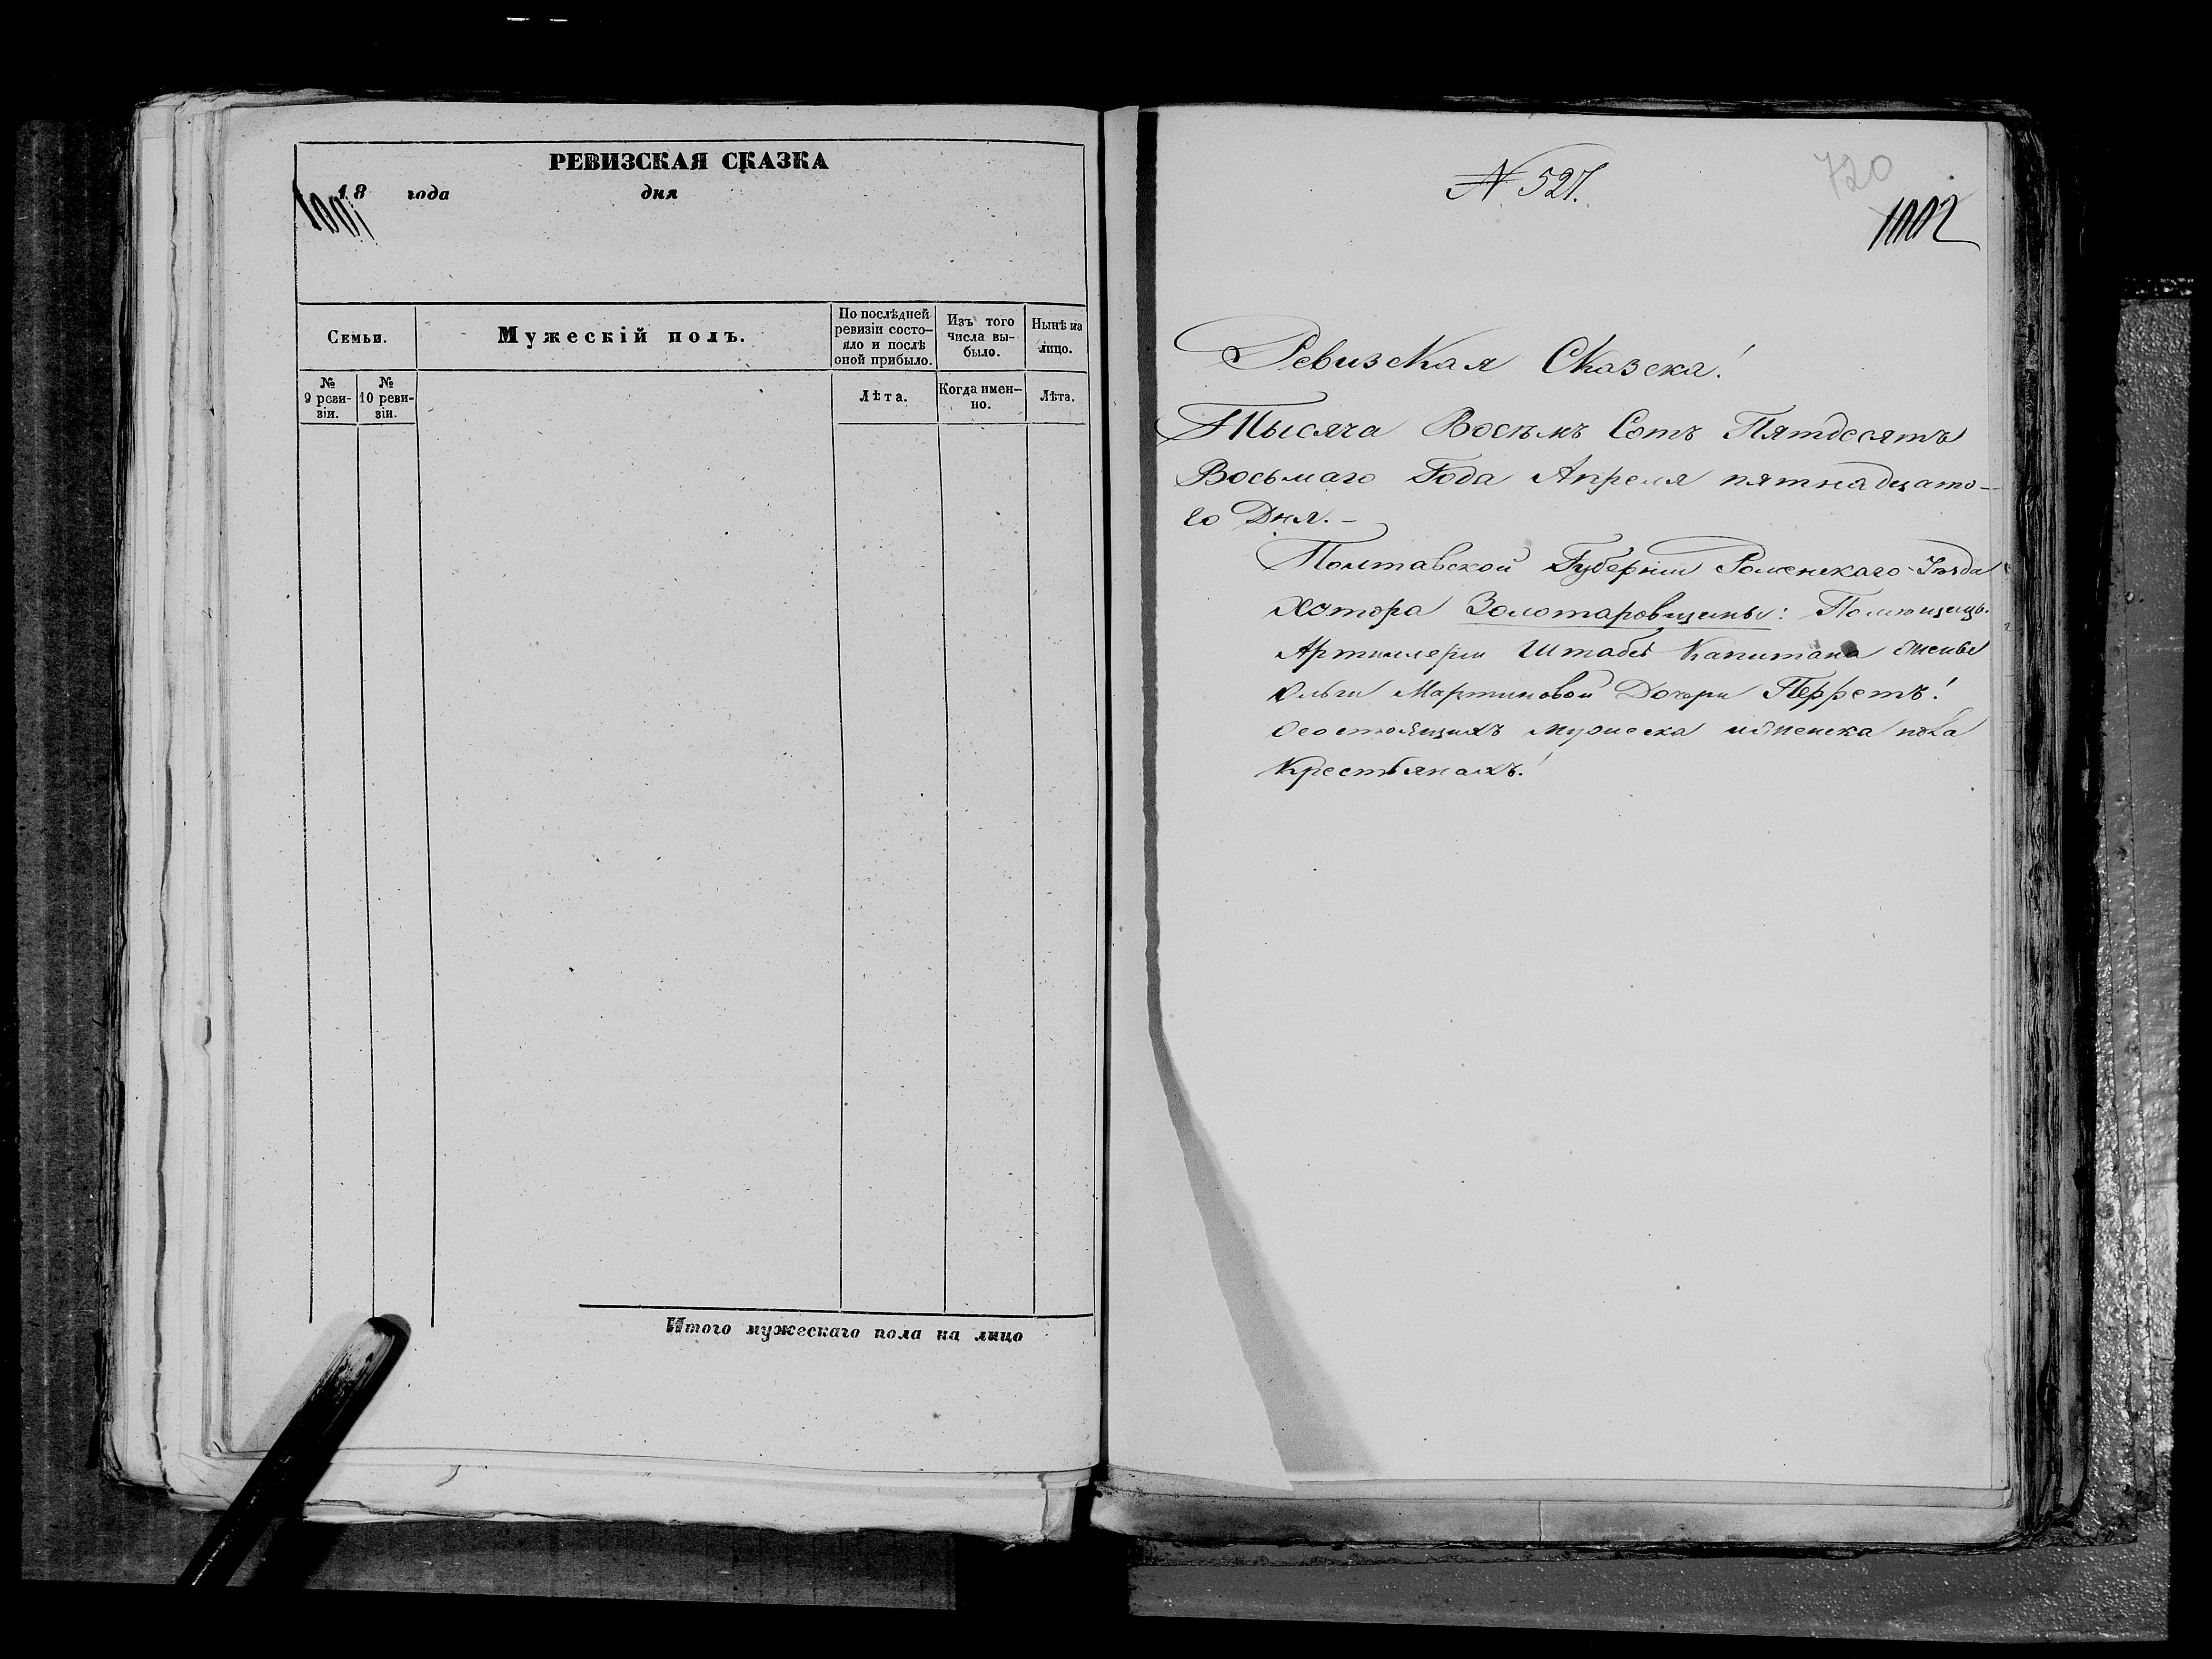 РЕВИЗСКАЯ СКАЗКА
18 года дня
1001
Семьи.
Мужескій полъ.
По послѣдней ревизіи состо-
яло и послѣ
оной прибыло.
Изъ того
числа вы-
было.
Нынѣ на
лицо.
№
9 реви-
зіи.
№
10 реви-
зіи.
Лѣта.
Когда имен-
но.
Лѣта.
Итого мужескаго пола на лицо
N 527.
720
1002
Ревизская Сказска!
Тысяча Восемъ Сотъ Пятдесятъ
Восьмаго Года Апреля пятнадцато-
го Дня.-
Полтавской Губерніи Роменскаго Уѣзда
Хотора Золотаровщины: Помѣщицы
Артиллеріи Штабсъ Капитана жены
Ольги Мартиновой Дочери Перретъ!
О состоящихъ мужеска и женска пола
Крестьянахъ!